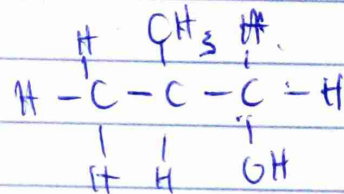 H CH3 H
H – C – C – C – H
H H OH